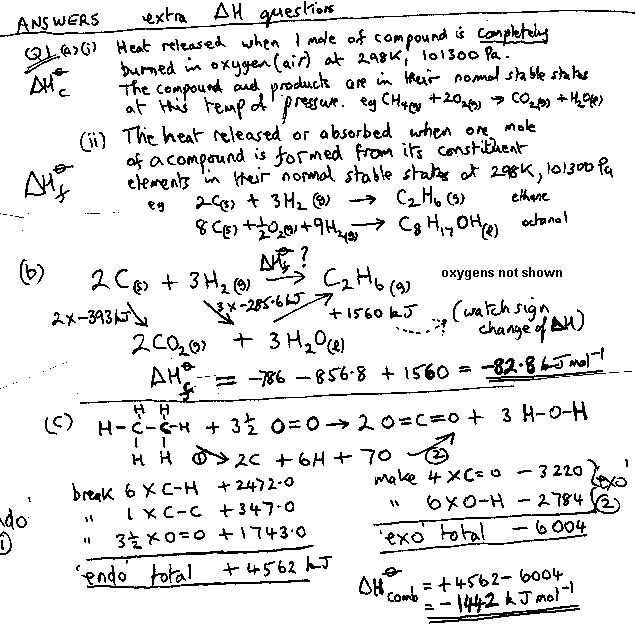 ANSWERS extra ΔH questions
Q1 (a)(i) Heat released when 1 mole of compound is completely
ΔH⊖c burned in oxygen (air) at 298K, 101300 Pa.
The compound and products are in their normal stable states
at this temp & pressure. eg CH4(g) + 2O2(g) → CO2(g) + H2O(l)
(ii) The heat released or absorbed when one mole
ΔH⊖f of a compound is formed from its constituent
elements in their normal stable states at 298K, 101300 Pa
eg 2C(s) + 3H2(g) → C2H6(g) ethane
8C(s) + ½O2(g) + 9H2(g) → C8H17OH(l) octanol
(b) 2C(s) + 3H2(g) ΔH⊖f ? → C2H6(g) oxygens not shown
2x-393kJ 3x-285.6kJ +1560 kJ (watch sign
change of ΔH)
2CO2(g) + 3H2O(l)
ΔH⊖f = -786 - 856.8 + 1560 = -82.8 kJ mol-1
(c) H H
H-C-C-H + 3½ O=O → 2 O=C=O + 3 H-O-H
H H ① 2C + 6H + 7O ②
break 6 x C-H +2472.0
" 1 x C-C +347.0
" 3½ x O=O +1743.0
'endo' total +4562 kJ
'endo'
①
make 4 x C=O - 3220 'exo'
" 6 x O-H - 2784 ②
'exo' total - 6004
ΔH⊖comb = +4562 - 6004
= -1442 kJ mol-1